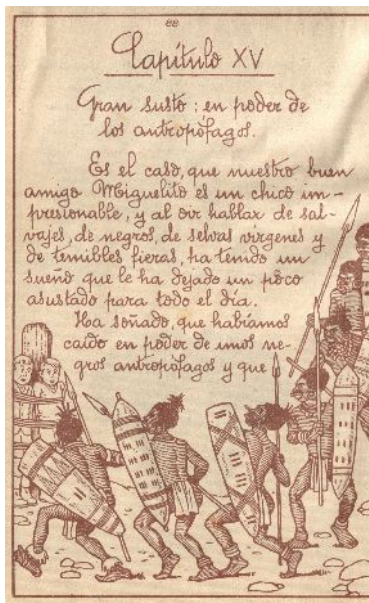 88
Capítulo XV
Gran susto: en poder de
los antropófagos.
Es el caso, que nuestro buen
amigo Miguelito es un chico im-
presionable, y al oir hablar de sal-
vajes, de negros, de selvas vírgenes y
de temibles fieras, ha tenido un
sueño que le ha dejado un poco
asustado para todo el día.
Ha soñado, que habíamos
caído en poder de unos ne-
gros antropófagos y que